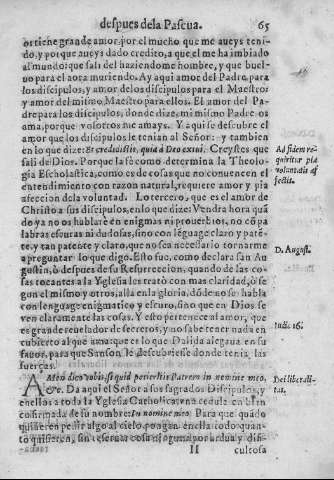 despues dela Pascua. 65
os tiene grande amor, por el mucho que me aueys teni-
do, y por que aueys dado credito, a que el me ha imbiado
al mundo: que sali del haziendome hombre, y que buel-
uo para el aora muriendo. Ay aqui amor del Padre, para
los discipulos, y amor delos discipulos para el Maestro
y amor del mismo Maestro para ellos. El amor del Pa-
dre para los discipulos, donde dize, mi mismo Padre os
ama, porque vosotros me amays. Y aqui se descubre el
amor que los discipulos le tenian al Señor: y tambien
en lo que dize: Et credidistis, quia à Deo exiui. Creystes que
sali de Dios. Porque la fè como determina la Theolo-
gia Escholastica, como es de cosas que no conuencen el
entendimiento con razon natural, requiere amor y pia
afeccion dela voluntad. Lo tercero, que es el amor de
Christo a sus discipulos, enlo que dize: Vendra hora quã
do ya no os hablare en enigmas ni prouerbios, no cõ pa
labras escuras ni dudosas, sino con lẽguage claro y patẽ-
te, y tan patente y claro, que no sea necessario tornarme
a preguntar lo que digo. Esto fue, como declara san Au
gustin, ò despues de su Resurreccion, quando de las co-
sas tocantes a la Yglesia les tratò con mas claridad, ò se
gun el mismo y otros, alla en la gloria, dõde no se habla
con lenguage enigmatico y escuro, sino que en Dios se
veen claramente las cosas. Y esto pertenece al amor, que
es grande reuelador de secretos, y no sabe tener nada en
cubierto al que ama: que es lo que Dalida alegaua en su
fauor, para que Sanson le descubriesse donde tenia las
fuerças.
AMen dico vobis, si quid petieritis Patrem in nomine meo,
&c. Da aqui el Señor a los sagrados Discipulos, y
en ellos a toda la Yglesia Catholica, vna cedula en blãco
confirmada de su nombre: In nomine meo. Para que quãdo
quisieren pedir algo al cielo pongan en ella todo quan-
to quisieren, sin reseruar cosa ninguna por ardua y difi-
H culcosa
Ad fidem re-
quiritur pia
voluntatis af
fectio.
D. August.
Iudic. 16.
Dei liberali-
tas.